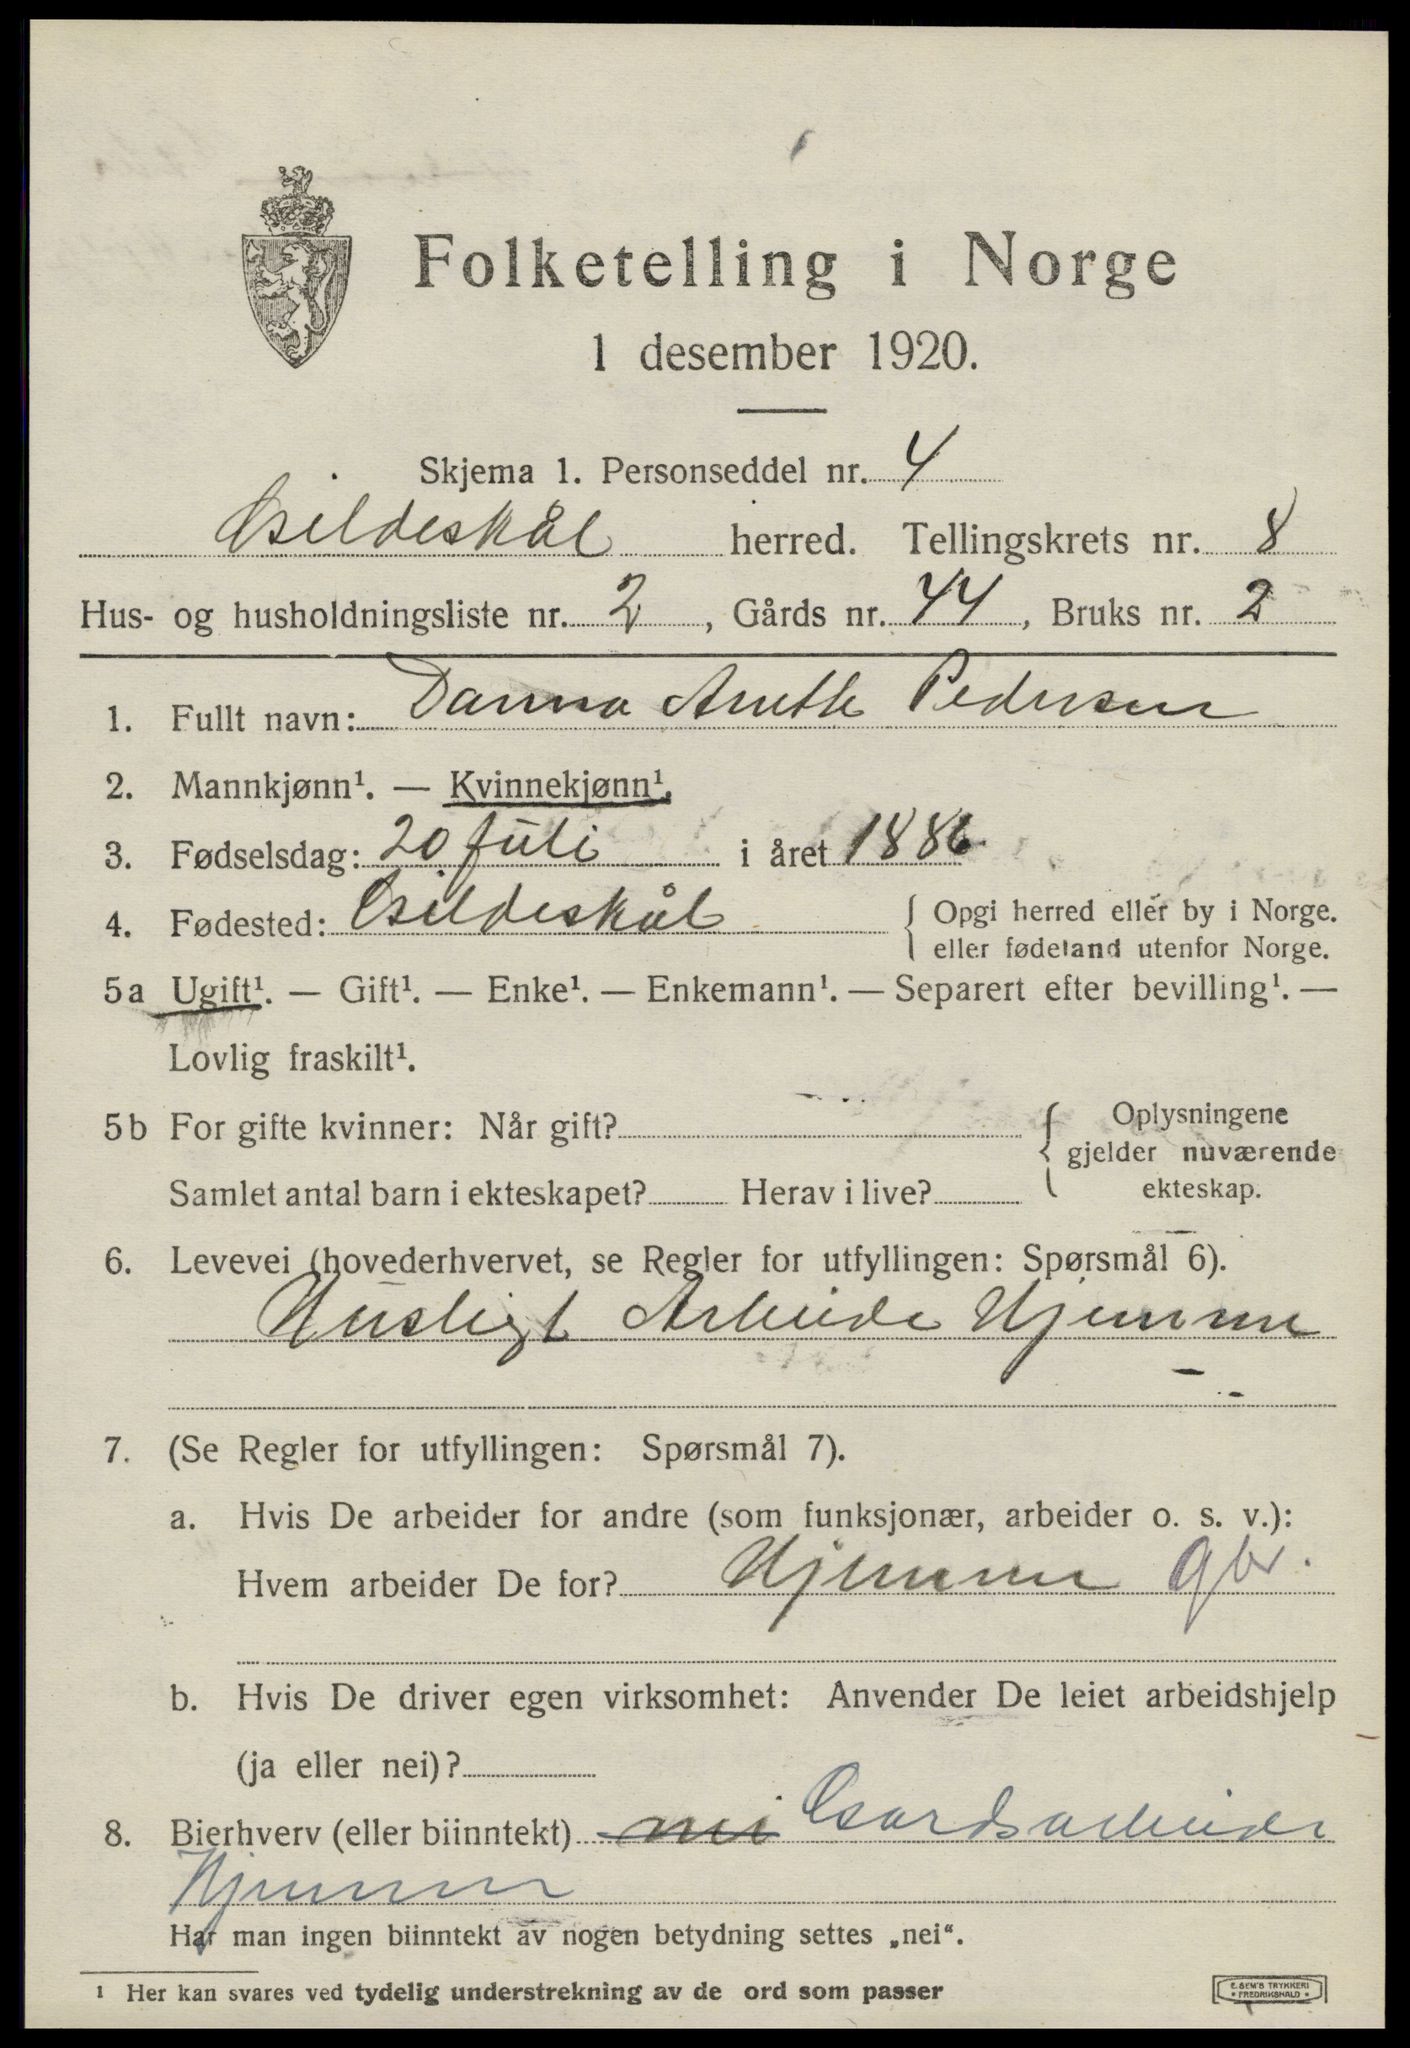 Folketelling i Norge
1 desember 1920.
Skjema 1. Personseddel nr. 4
Gildeskål herred. Tellingskrets nr. 8
Hus- og husholdningsliste nr. 2, Gårds nr. 44, Bruks nr. 2
1. Fullt navn: Danna Anette Pedersen
2. Mannkjønn¹. — Kvinnekjønn¹.
3. Fødselsdag: 20 juli i året 1886
4. Fødested: Gildeskål { Opgi herred eller by i Norge.
eller fødeland utenfor Norge.
5a Ugift¹. — Gift¹. — Enke¹. — Enkemann¹. — Separert efter bevilling¹. —
Lovlig fraskilt¹.
5b For gifte kvinner: Når gift? { Oplysningene
gjelder nuværende
Samlet antal barn i ekteskapet? Herav i live? ekteskap.
6. Levevei (hovederhvervet, se Regler for utfyllingen: Spørsmål 6).
Husligt Arbeide Hjemme
7. (Se Regler for utfyllingen: Spørsmål 7).
a. Hvis De arbeider for andre (som funksjonær, arbeider o. s. v.):
Hvem arbeider De for? Hjemme gbr.
b. Hvis De driver egen virksomhet: Anvender De leiet arbeidshjelp
(ja eller nei)?
8. Bierhverv (eller biinntekt) nei Gardsarbeide
Hjemme
Har man ingen biinntekt av nogen betydning settes „nei“.
¹ Her kan svares ved tydelig understrekning av de ord som passer
E. SEM'S TRYKKERI
FREDRIKSHALD